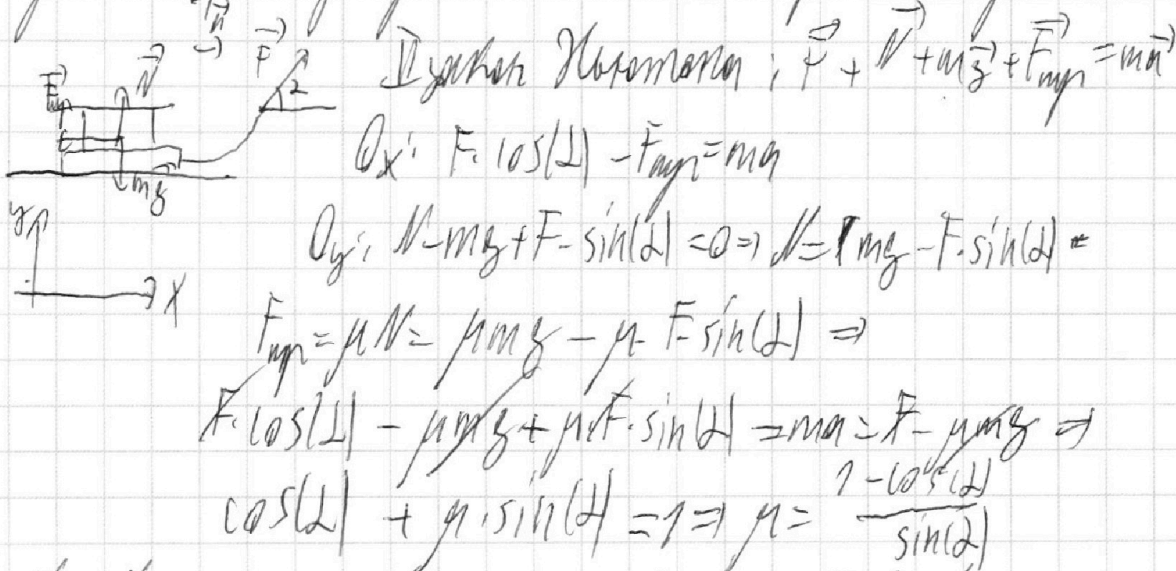 F⃗
N⃗
F⃗тр
α
mg⃗
y
X
II закон Ньютона: F⃗ + N⃗ + mg⃗ + F⃗тр = ma⃗
Ox: F·cos(α) - Fтр = ma
Oy: N - mg + F·sin(α) = 0 => N = mg - F·sin(α)
Fтр = μN = μmg - μ·F·sin(α) =>
F·cos(α) - μmg + μ·F·sin(α) = ma = F - μmg =>
cos(α) + μ·sin(α) = 1 => μ = (1 - cos(α))/sin(α)